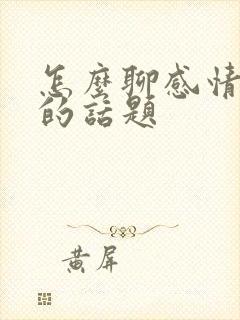 怎麼聊感情
的話題
黃屏